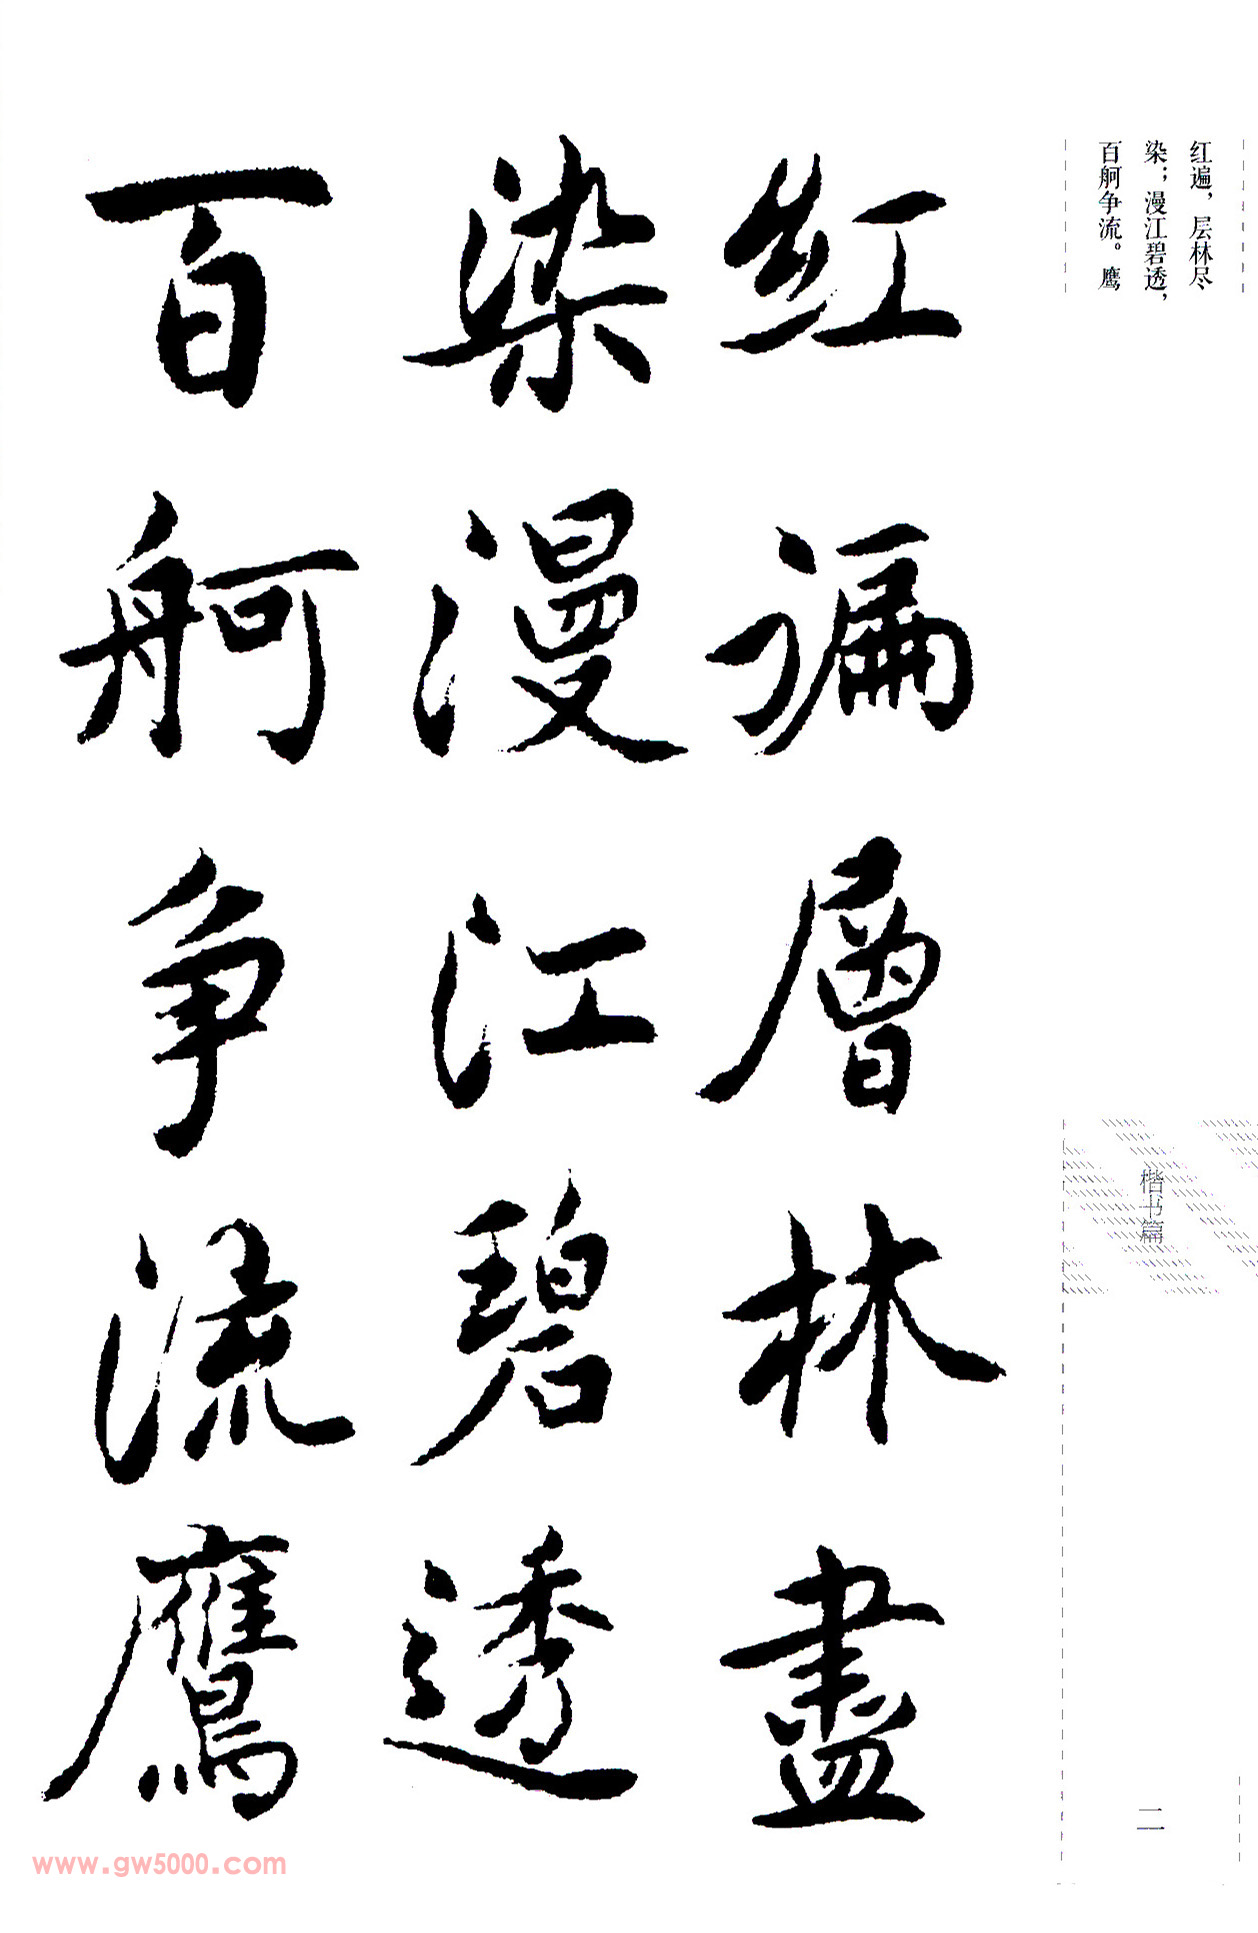 红遍，层林尽
染；漫江碧透，
百舸争流。鹰
红遍層林盡
染漫江碧透
百舸争流鷹
楷书篇
二
www.gw5000.com